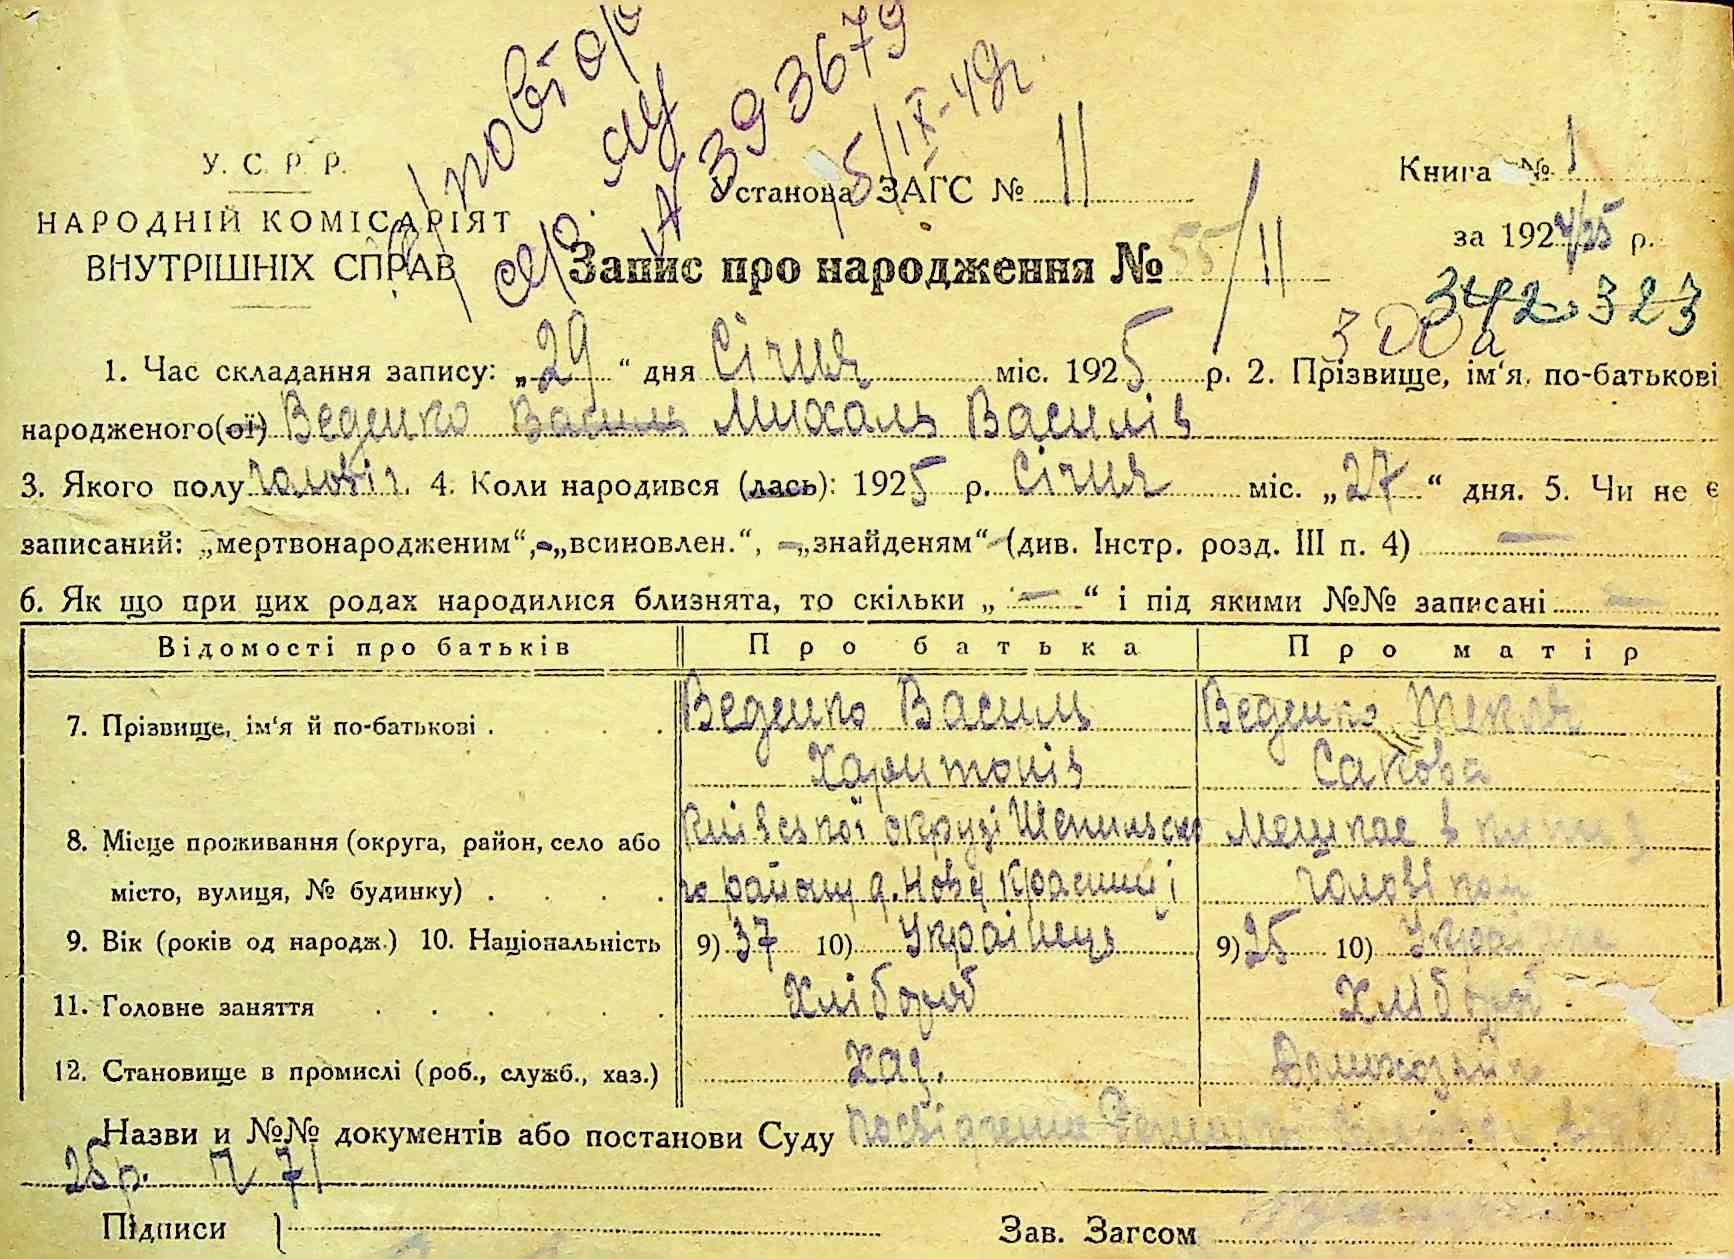 повтор
яц
сер.
№ 393679
5/IX-49г.
У. С. Р. Р.
НАРОДНІЙ КОМІСАРІЯТ
ВНУТРІШНІХ СПРАВ
Установа ЗАГС № 11
Книга № 1
за 1924/25 р.
Запис про народження № 55/11
342 323
1. Час складання запису: „29“ дня Січня міс. 1925 р. 2. Прізвище, ім‘я, по-батькові
народженого(ої) Веденко Василь Михаль Василів
3. Якого полу чоловіч. 4. Коли народився (лась): 1925 р. Січня міс. „27“ дня. 5. Чи не є
записаний: „мертвонародженим“, „всиновлен.“, „знайденям“ (див. Інстр. розд. III п. 4) —
6. Як що при цих родах народилися близнята, то скільки „—“ і під якими №№ записані —
Відомості про батьків Про батька Про матір
7. Прізвище, ім‘я й по-батькові . Веденко Василь Веденко Текля
Харитонів
8. Місце проживання (округа, район, село або Київської округі Мешкає в
місто, вулиця, № будинку) . району д. Нові
9. Вік (років од народж.) 10. Національність 9) 37 10) Українець 9) 25 10)
11. Головне заняття Хлібороб Хлібороб
12. Становище в промислі (роб., служб., хаз.) Хаз.
Назви и №№ документів або постанови Суду посвідчення
25 р. № 71
Підписи Зав. Загсом